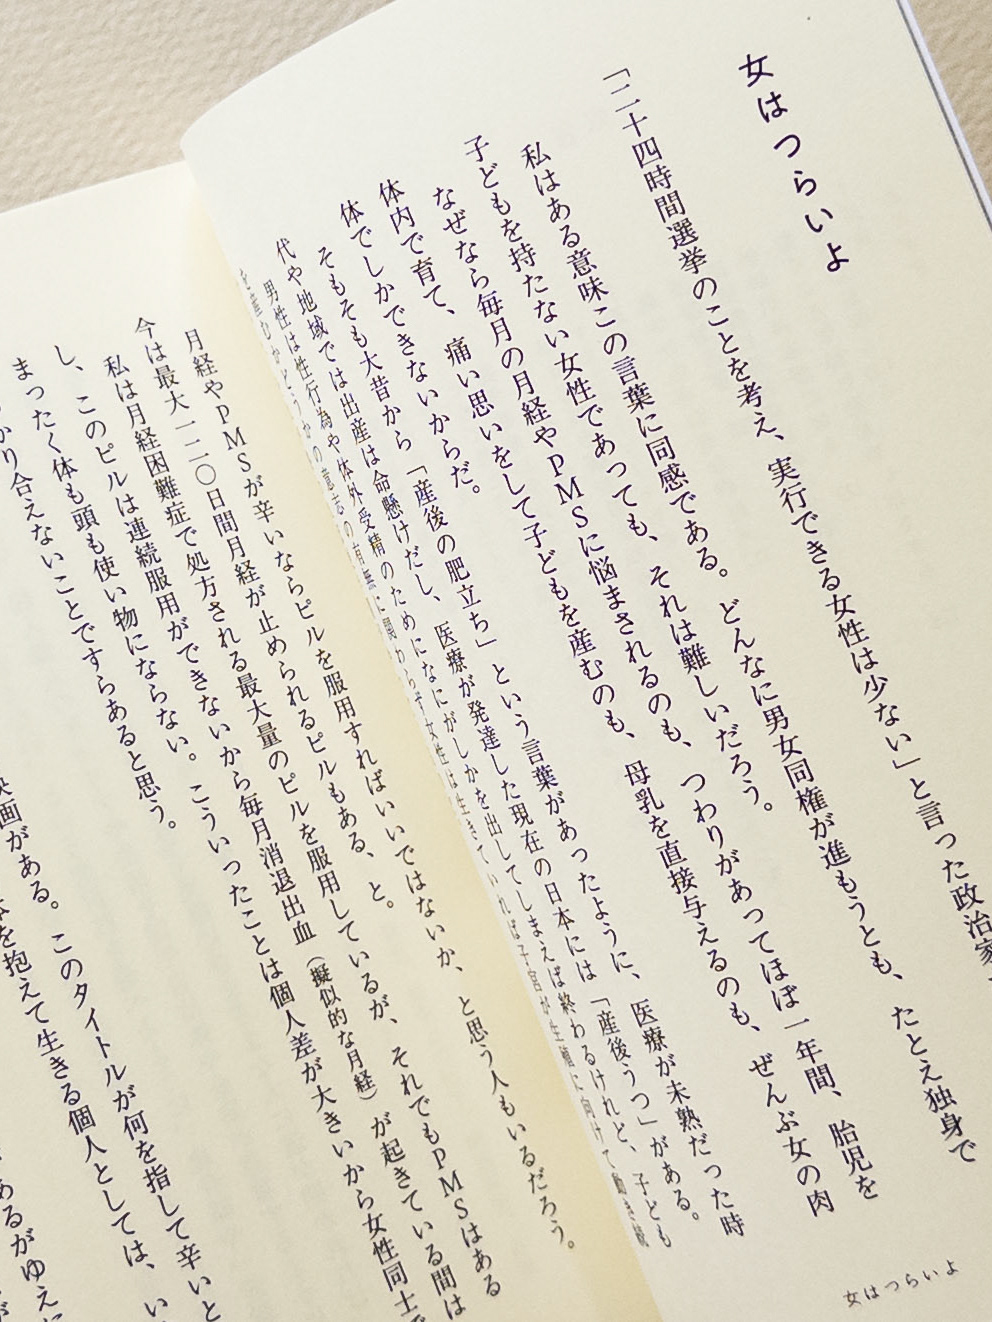 女はつらいよ
「二十四時間選挙のことを考え、実行できる女性は少ない」と言った政治家、
私はある意味この言葉に同感である。どんなに男女同権が進もうとも、たとえ独身で
子どもを持たない女性であっても、それは難しいだろう。
なぜなら毎月の月経やPMSに悩まされるのも、つわりがあってほぼ一年間、胎児を
体内で育て、痛い思いをして子どもを産むのも、母乳を直接与えるのも、ぜんぶ女の肉
体でしかできないからだ。
そもそも大昔から「産後の肥立ち」という言葉があったように、医療が未熟だった時
代や地域では出産は命懸けだし、医療が発達した現在の日本には「産後うつ」がある。
男性は性行為や体外受精のためになにがしかを出してしまえば終わるけれど、子ども
を産むかどうかの意志の有無に関わらず女性は生きていれば子宮が生殖に向けて動き
月経やPMSが辛いならピルを服用すればいいではないか、と思う人もいるだろう。
今は最大一二〇日間月経が止められるピルもある、と。
私は月経困難症で処方される最大量のピルを服用しているが、それでもPMSはある
し、このピルは連続服用ができないから毎月消退出血（擬似的な月経）が起きている間は
まったく体も頭も使い物にならない。こういったことは個人差が大きいから女性同士で
かり合えないことですらあると思う。
映画がある。このタイトルが何を指して辛いと
を抱えて生きる個人としては、い
あるがゆえに
女はつらいよ